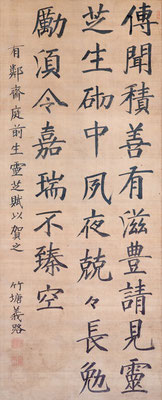 傳聞積善有滋豊請見靈
芝生砌中夙夜兢々長勉
勵須令嘉瑞不臻空
有鄰齋庭前生靈芝賦以賀之
竹塘義路